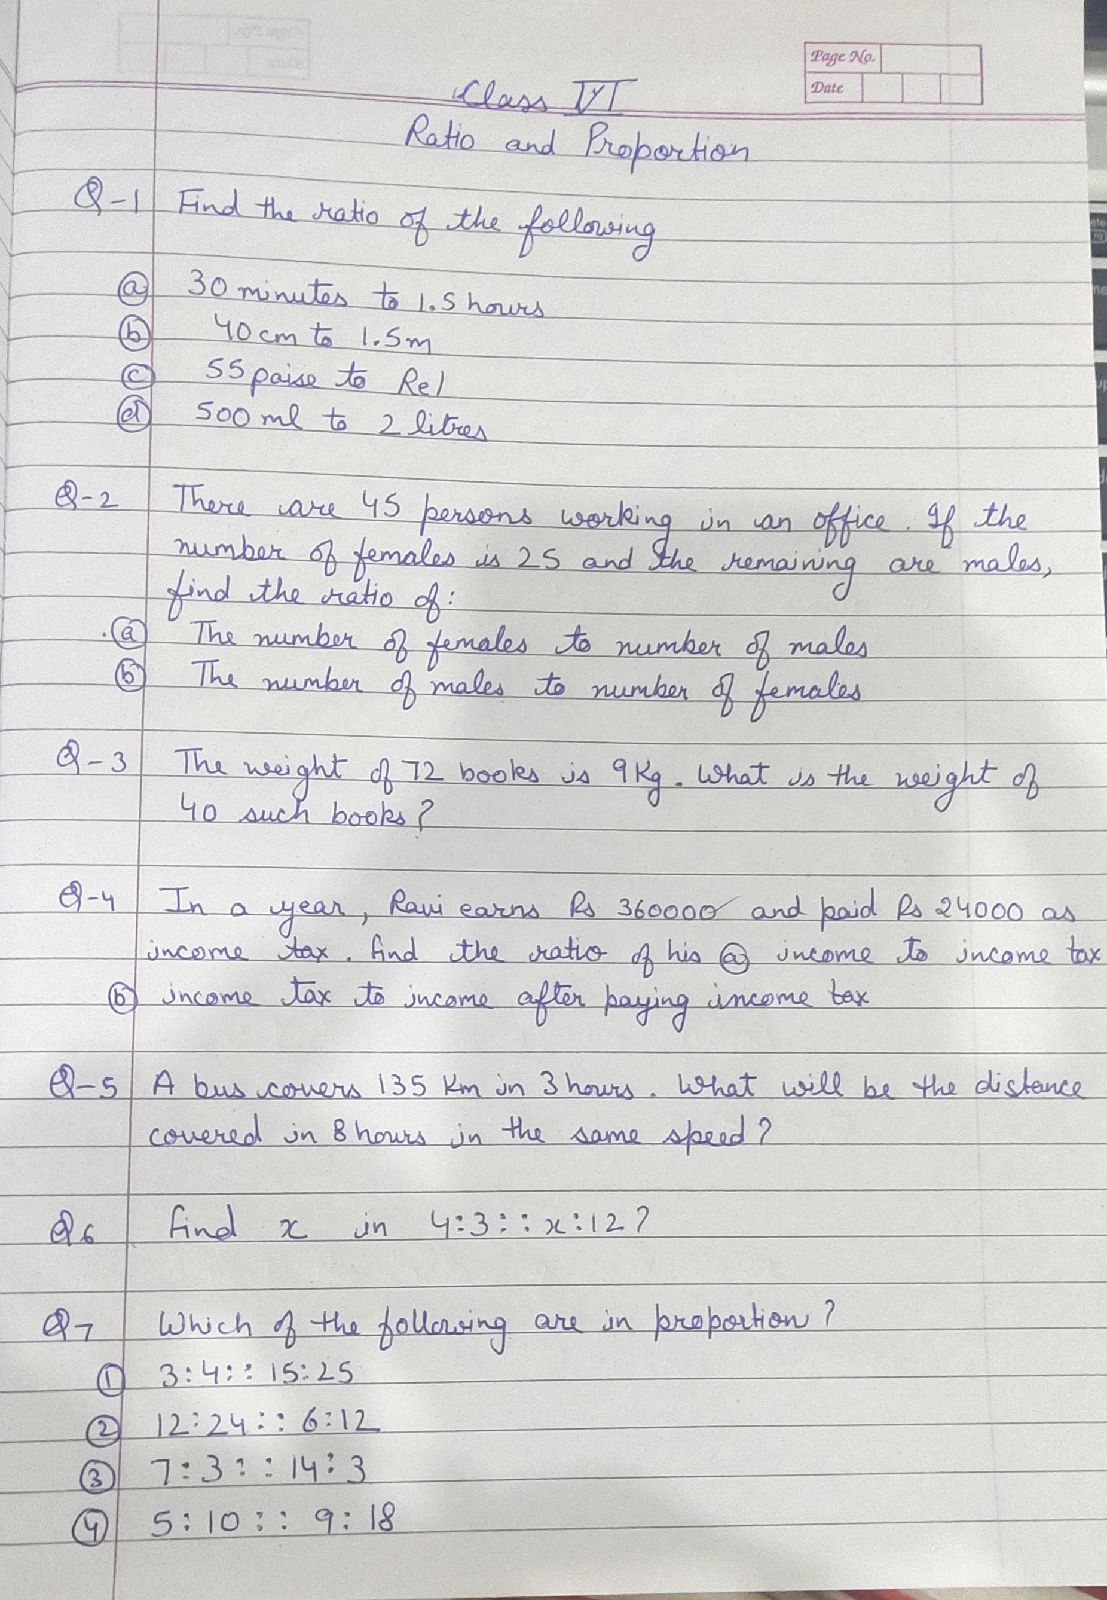 Page No.
Date
Class VI
Ratio and Proportion
Q-1 Find the ratio of the following
(a) 30 minutes to 1.5 hours
(b) 40 cm to 1.5m
(c) 55 paise to Re1
(d) 500 ml to 2 litres
Q-2 There are 45 persons working in an office. If the
number of females is 25 and the remaining are males,
find the ratio of:
(a) The number of females to number of males
(b) The number of males to number of females
Q-3 The weight of 72 books is 9Kg. What is the weight of
40 such books?
Q-4 In a year, Ravi earns Rs 360000 and paid Rs 24000 as
income tax. find the ratio of his (a) income to income tax
(b) income tax to income after paying income tax
Q-5 A bus covers 135 Km in 3 hours. What will be the distance
covered in 8 hours in the same speed?
Q6 find x in 4:3::x:12?
Q7 Which of the following are in proportion?
(1) 3:4::15:25
(2) 12:24::6:12
(3) 7:3::14:3
(4) 5:10::9:18